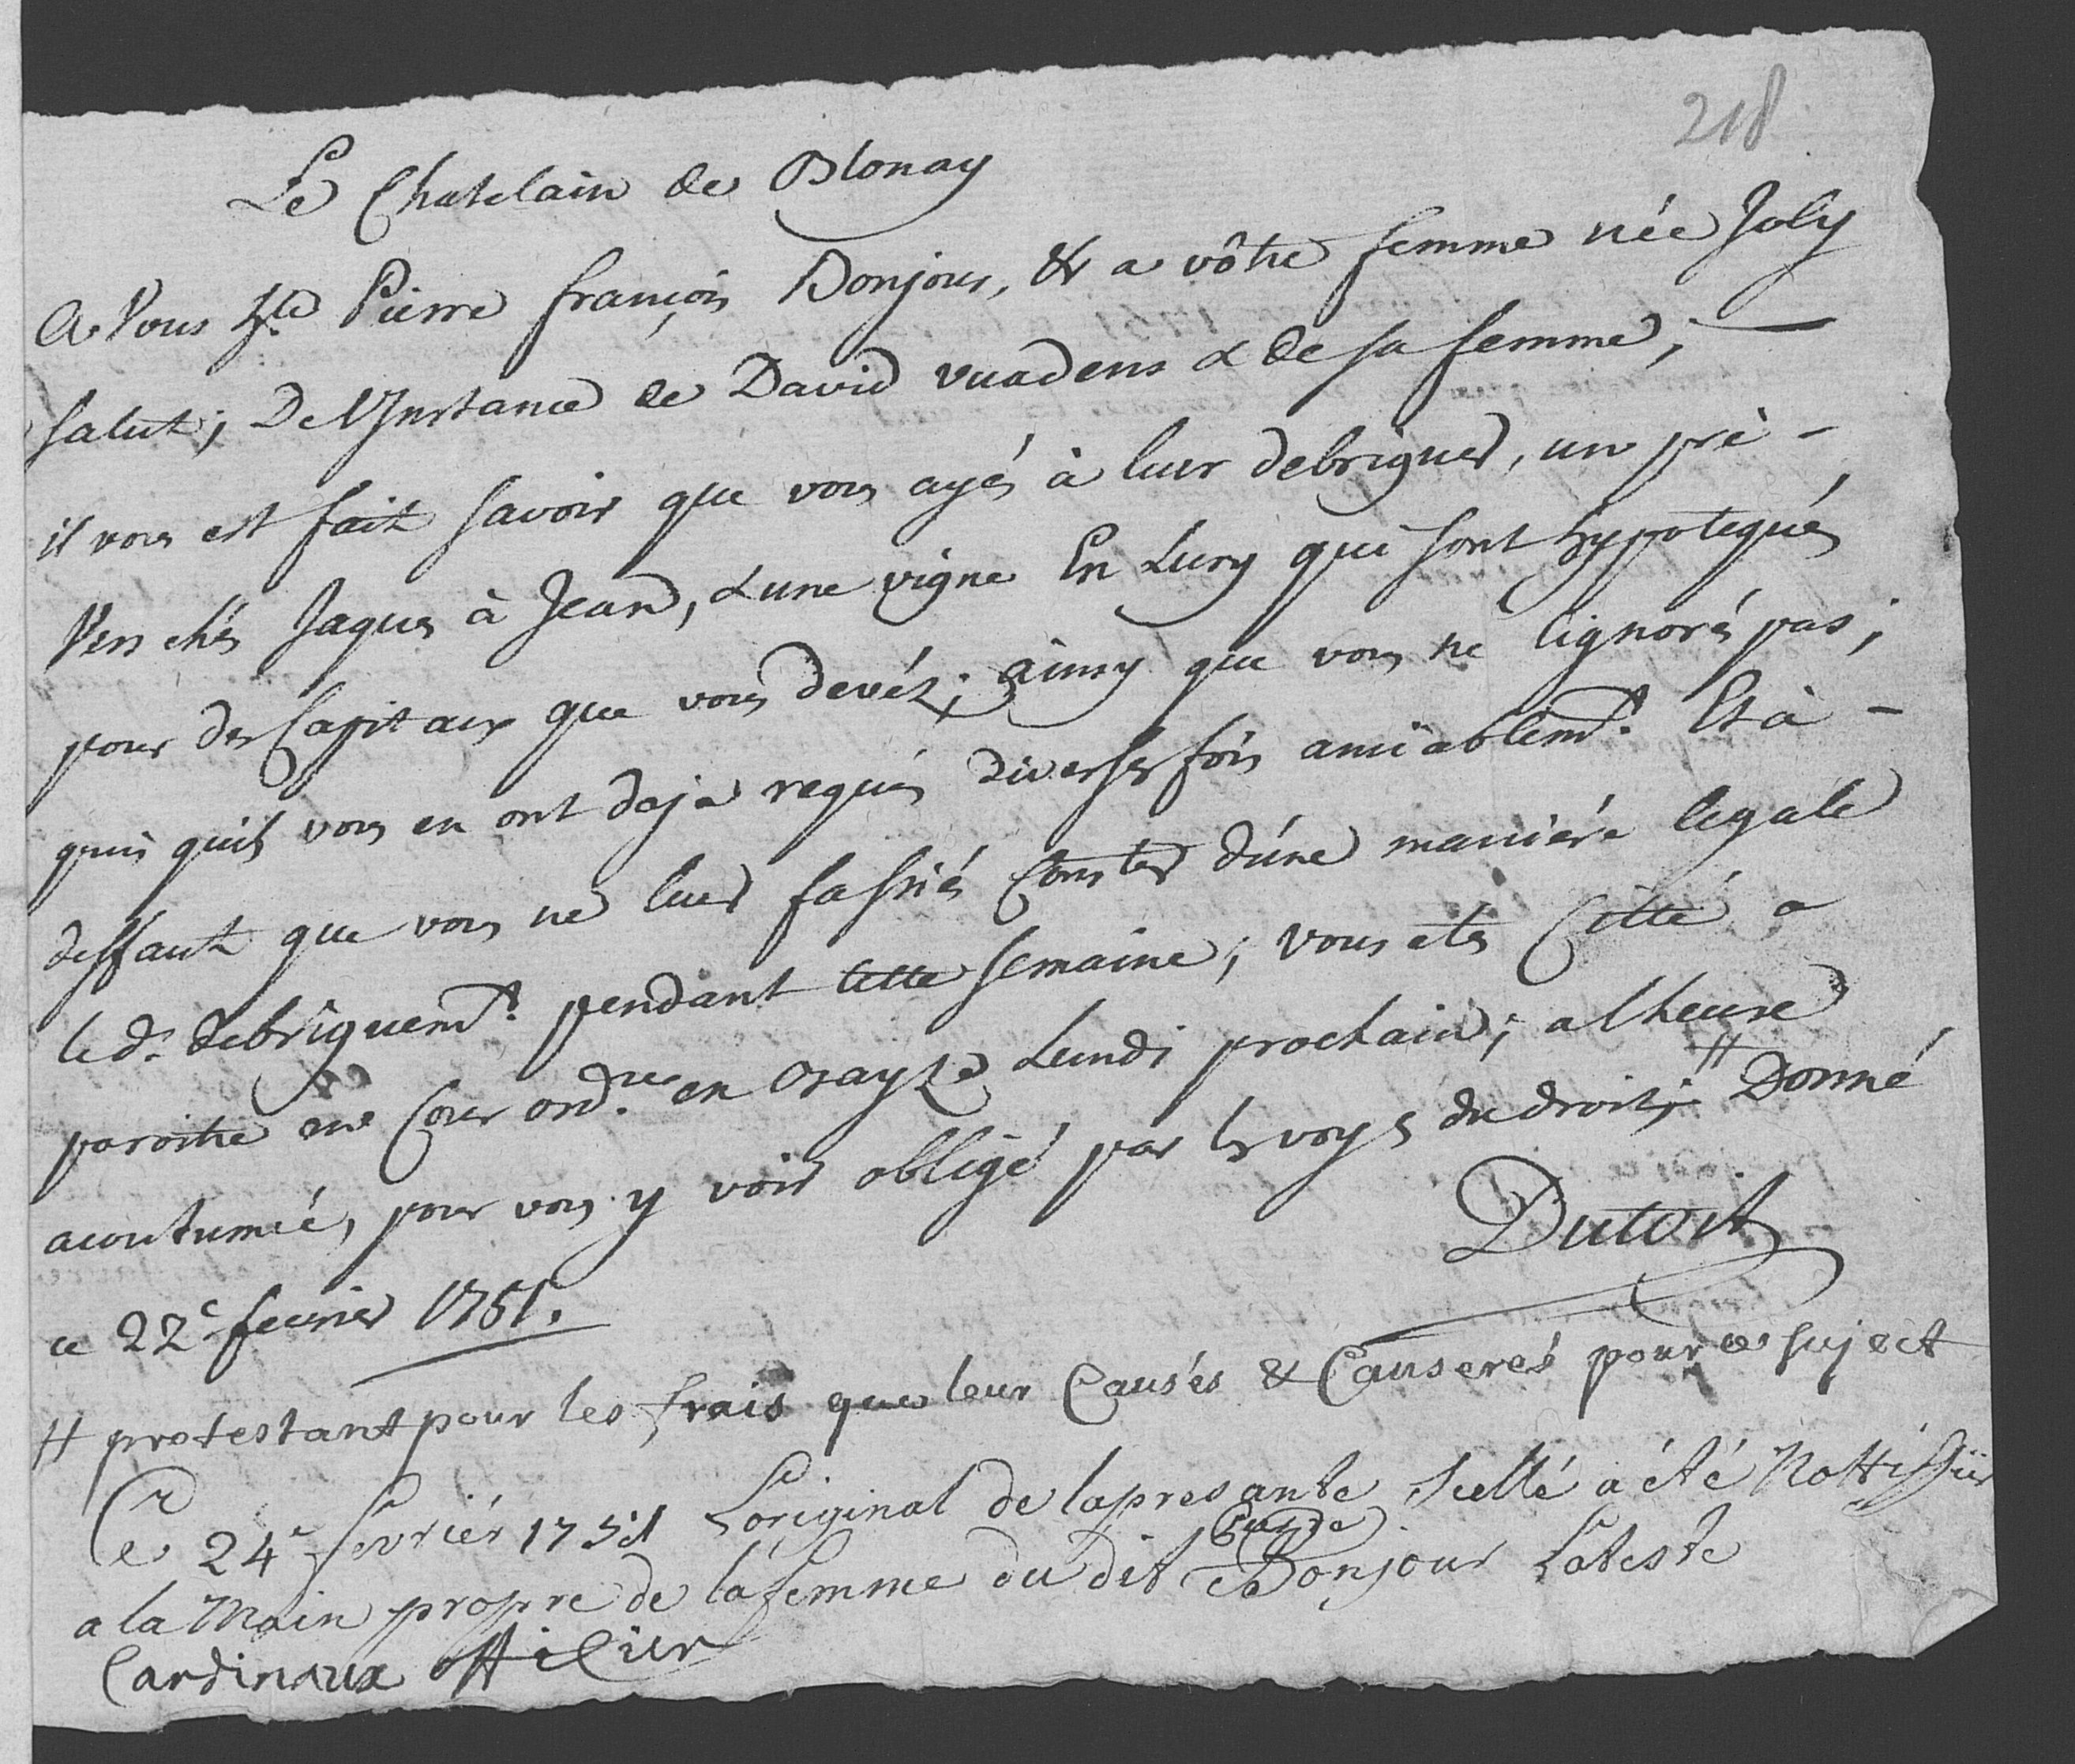 218
Le Chatelain de Blonay
A Vous Hte Pierre françois Bonjour, & a vôtre femme née Joly
salut; De l'Instance de David vuadens & de sa femme; —
il vous est fait savoir que vous ayés à leur debriguer, un prè -
Vers chés Jaques à Jean, & une vigne En Lury qui sont hypotequés
pour des Capitaux que vous devéz; ainsy que vous ne lignorés pas;
puis quils vous en ont deja requis diverses fois amiablemt. Et à -
deffaut que vous ne leur fassiés Conster d'une maniére legale
led. debriguemt. pendant cette semaine; vous etes Citté a
paroitre en Cour ordre. en Lundi prochain; a lheure
acoutumée, pour vous y voir obligé par les voyes du droit; # Donné
ce 22e fevrier 1751.
Dutoit
# protestant pour les frais que leur Causés & Causerés pour ce suject
Ce 24e fevriér 1751 Loriginal de lapresante scellé a été Nottiffiér
a la Main propre de la femme du dit Bonjour Lateste
Cardinaux officier